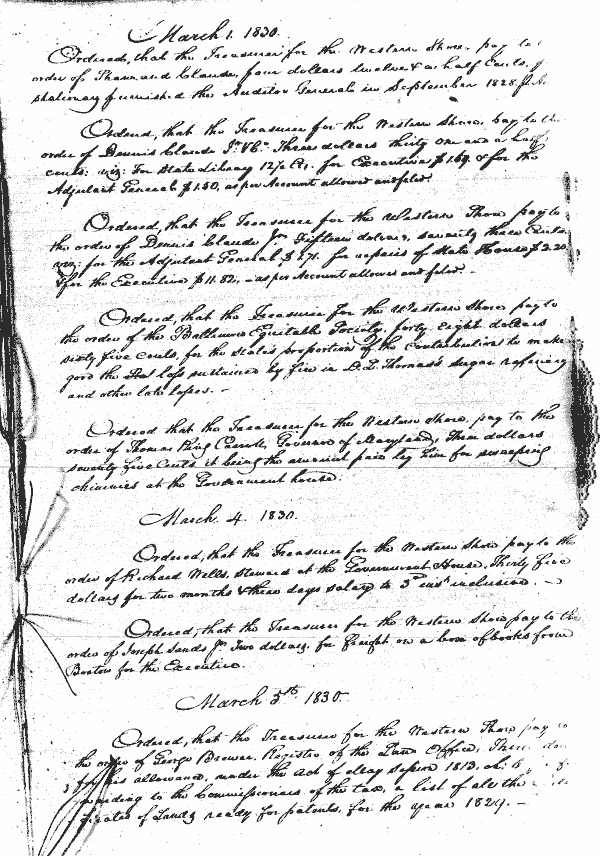 March 1. 1830.
Ordered, that the Treasurer for the Western Shore, pay to
order of Shaw and Claude, four dollars twelve & a half Cents, f
stationary furnished the Auditor General in September 1828
Ordered, that the Treasurer for the Western Shore, pay to the
order of Dennis Claude Jr. &Co. Three dollars thirty one and a half
cents: viz: For State Library 12½ Cts. for Executive $1.69. & for the
Adjutant General $1.50, as per Account allowed and filed.
Ordered, that the Treasurer for the Western Shore pay to
the order of Dennis Claude Jr. Fifteen dollars, seventy three Cents
viz: for the Adjutant General $1.71. for repairs of State House $2.20
& for the Executive $11.82, - as per Account allowed and filed -
Ordered, that the Treasurer for the Western Shore pay to
the order of the Baltimore Equitable Society, forty eight dollars
sixty five cents, for the State's proportion of the contribution to make
good the loss sustained by fire in D. L. Thomas's sugar refinery
and other late losses. -
Ordered that the Treasurer for the Western Shore, pay to the
order of Thomas King Carroll, Governor of Maryland, Three dollars
seventy five Cents it being the amount paid by him for sweeping
chimnies at the Government house.
March. 4. 1830.
Ordered, that the Treasurer for the Western Shore pay to the
order of Richard Wells, steward at the Government House, Thirty five
dollars for two months & three days salary to 3d inst inclusive. -
Ordered, that the Treasurer for the Western Shore pay to the
order of Joseph Sands Jr. Two dollars. for freight on a box of books from
Boston for the Executive.
March 5th. 1830.
Ordered, that the Treasurer for the Western Shore pay to
the order of George Brewer, Register of the Land Office,
for his allowance, under the Act of May session 1813, ch.
to the Commissioners of the tax, a list of all the
of Lands ready for patents, for the year 1829. -